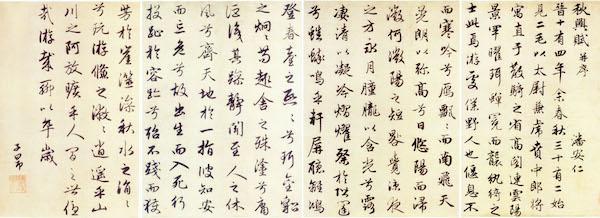 秋興賦 并序
潘安仁
晉十有四年余春秋三十有二始
見二毛以太尉掾兼虎賁中郎將
寓直于散騎之省高閣連雲陽
景罕曜珥蟬冕而襲紈綺之
士此焉游處僕野人也偃息不
而寒吟兮鴈飄飄而南飛天
晃朗以彌高兮日悠陽而浸
微何微陽之短晷覺涼夜
之方永月朣朧以含光兮露
凄清以凝冷熠燿粲於階闥
兮蟋蟀鳴乎軒屏聽離鴻
登春臺之熙熙兮珥金貂
之炯炯苟趣舍之殊塗兮庸
詎識其躁靜聞至人之休
風兮齊天地於一指彼知安
而忘危兮故出生而入死行
投趾於容跡兮殆不踐而獲
芳於崖澨澡秋水之涓涓
兮玩游鯈之潎潎逍遙乎山
川之阿放曠乎人間之世優
哉游哉聊以卒歲
子昂